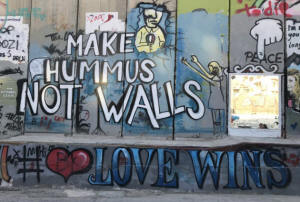 MAKE
HUMMUS
NOT WALLS
PEACE
#
LOVE WINS